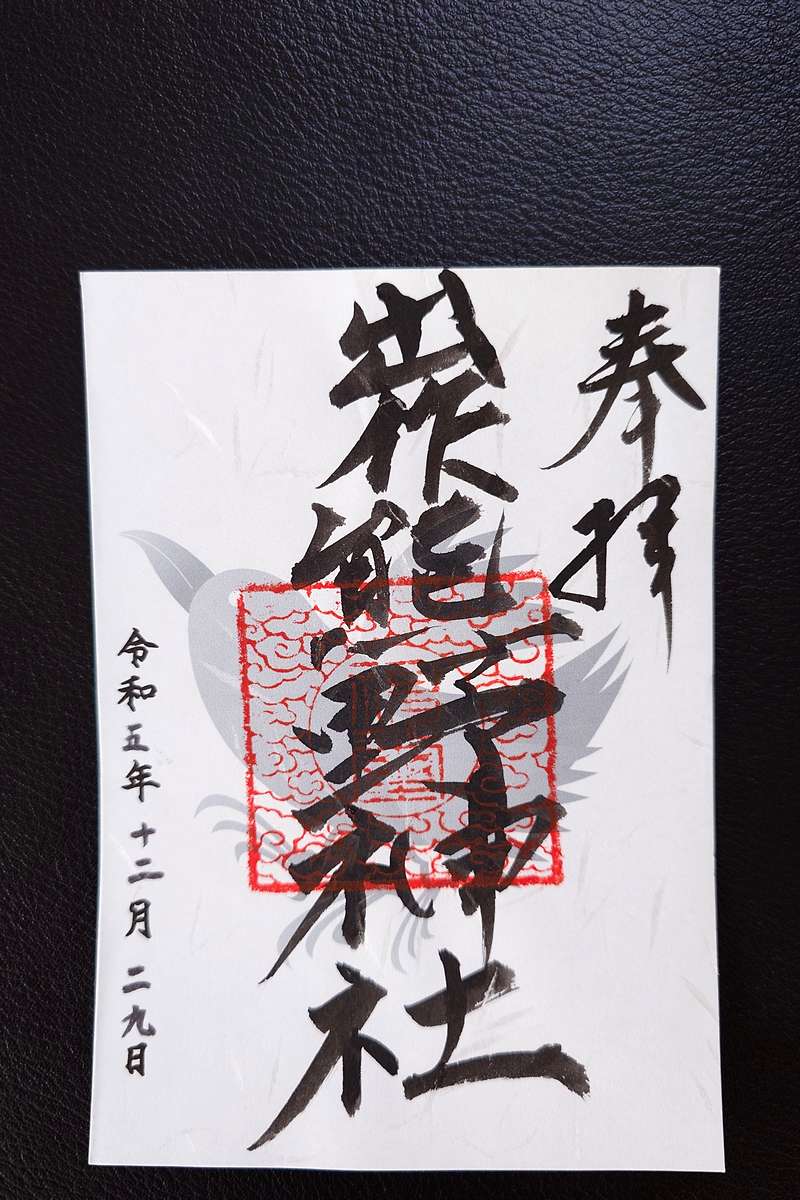 奉拝
熊野神社
令和五年十二月二九日